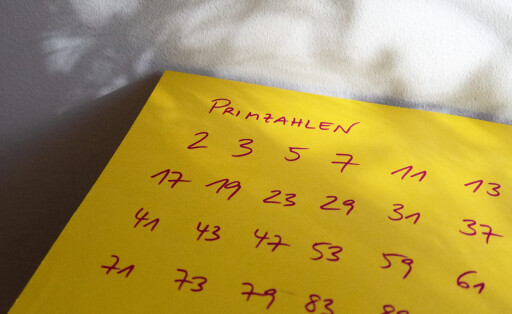 PRIMZAHLEN
2 3 5 7 11 13
17 19 23 29 31 37
41 43 47 53 59 61
71 73 79 83